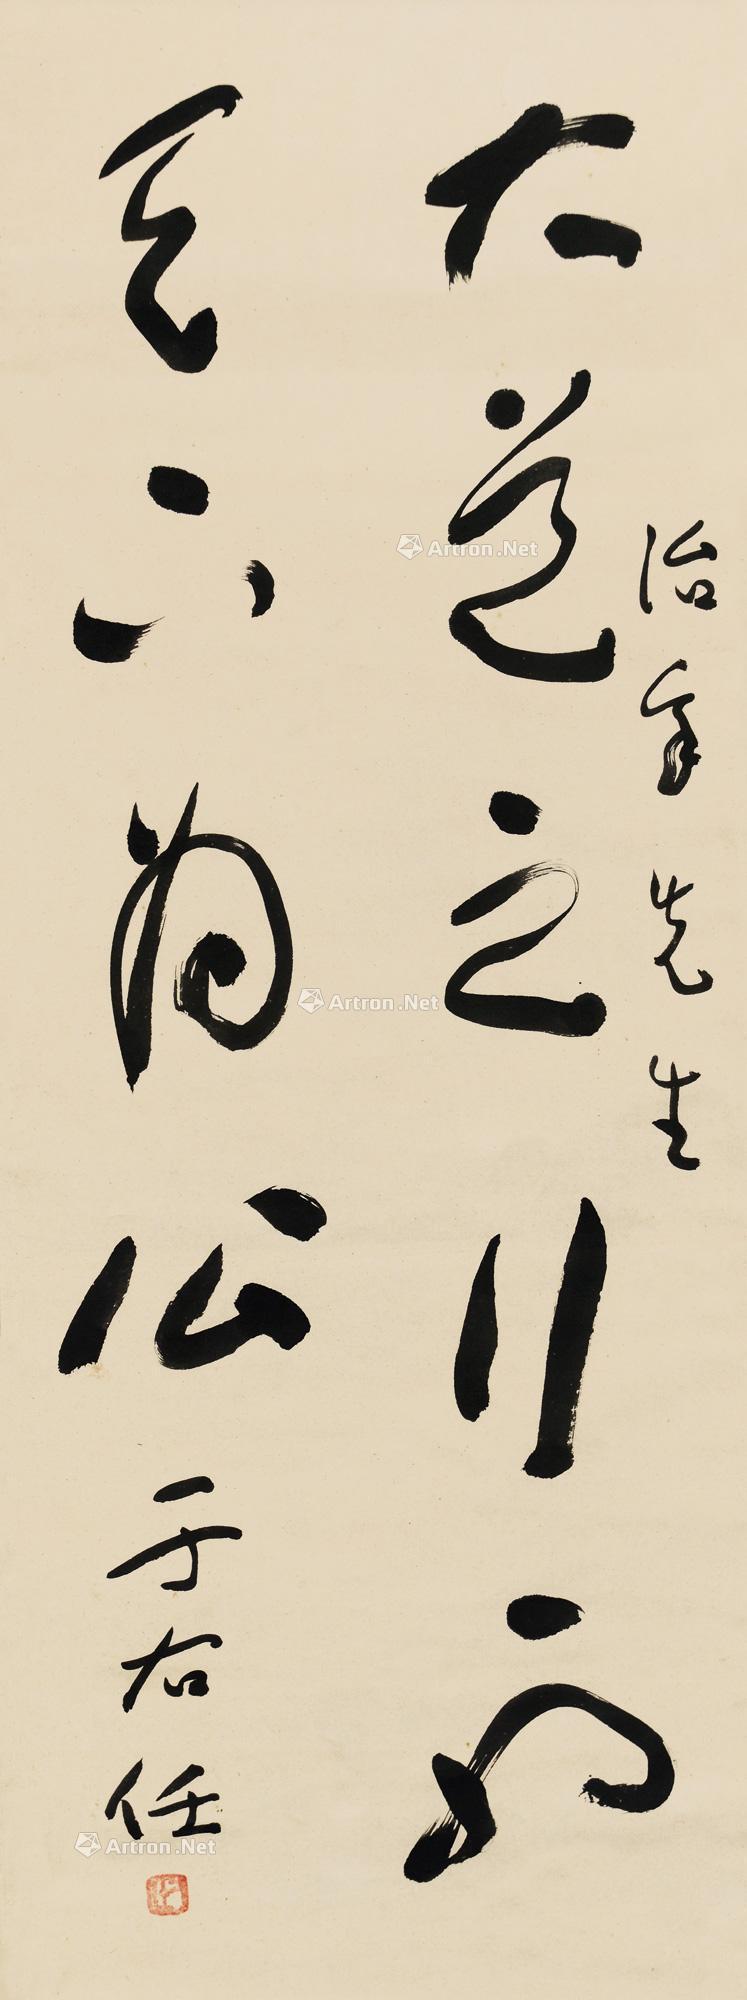 大道之行也
治 先生
天下为公
于右任
Artron.Net
Artron.Net
Artron.Net